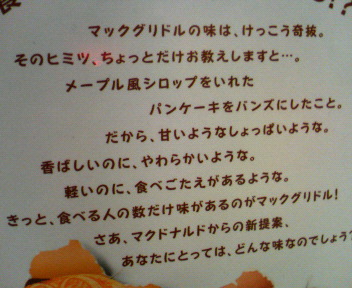 マックグリドルの味は、けっこう奇抜。
そのヒミツ、ちょっとだけお教えしますと…。
メープル風シロップをいれた
パンケーキをバンズにしたこと。
だから、甘いようなしょっぱいような。
香ばしいのに、やわらかいような。
軽いのに、食べごたえがあるような。
きっと、食べる人の数だけ味があるのがマックグリドル!
さあ、マクドナルドからの新提案、
あなたにとっては、どんな味なのでしょう?